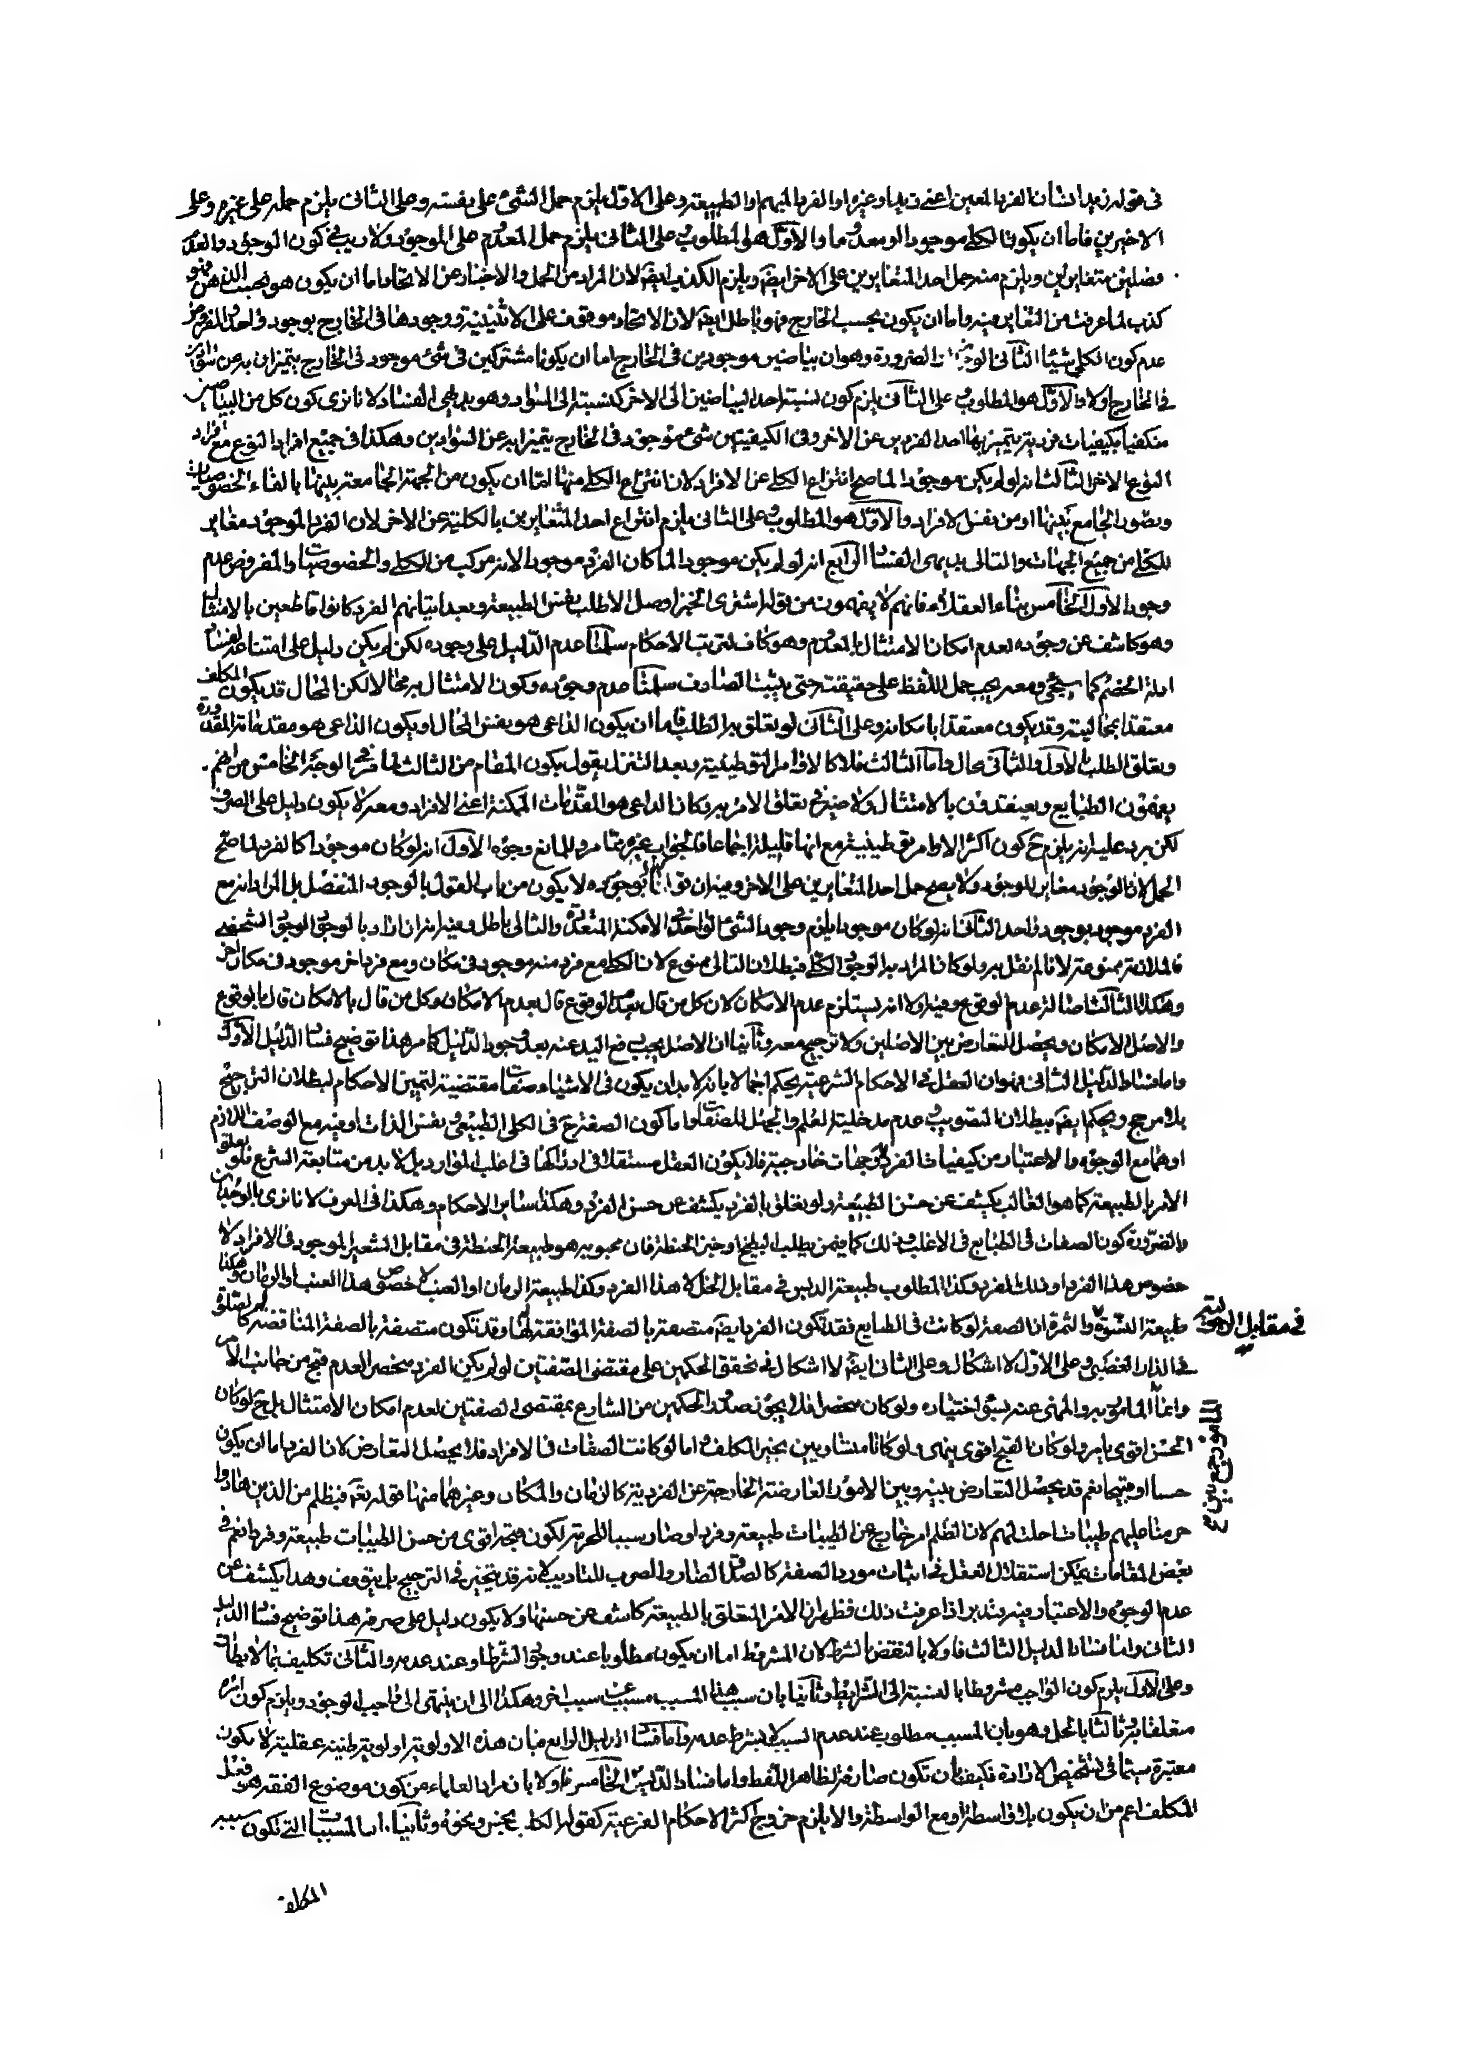 في قوله زيد انسان الفرد المعين اعني زيدا وغيره او الفرد المبهم او الطبيعة وعلى الاول يلزم حمل الشئ على نفسه وعلى الثاني يلزم حمله على غيره وعلى
الاخيرين فاما ان يكون الكلي موجودا او معدوما والاول هو المطلوب وعلى الثاني يلزم حمل المعدوم على الموجود ولا ريب في كون الموجود والمعدوم
فصلين متغايرين ويلزم منه حمل احد المتغايرين على الاخر ايضا ويلزم الكذب ايضا لان المراد من الحمل والاخبار عن الاتحاد اما ان يكون هو بحسب الذهن فهو
كذب لما عرفت من التغاير فيه واما ان يكون بحسب الخارج فهو باطل ايضا لان الاتحاد موقوف على الاثنينية ووجودها في الخارج بوجود واحد والمفروض
عدم كون الكلي شيئا الثاني الضرورة وهو ان بياضين موجودين في الخارج اما ان يكونا مشتركين في شئ موجود في الخارج يتميزان به عن
في الخارج اولا والاول هو المطلوب وعلى الثاني يلزم كون نسبة احد البياضين الى الاخر كنسبته الى السواد وهو بديهي الفساد لانا نرى كون كل من البياضين
متكيفا بكيفيات فردية يتميز بها احد الفردين عن الاخر وفي الكيفيتين شئ موجود في الخارج يتميزا به عن السوادين وهكذا في جميع افراد النوع مع افراد
النوع الاخر الثالث انه لو لم يكن موجودا لما صح انتزاع الكلي عن الافراد لان انتزاع الكلي منها اما ان يكون من الجهة الجامعة بينها بالغاء الخصوصيات
وتصور الجامع بينها او من نفس الافراد والاول هو المطلوب وعلى الثاني يلزم انتزاع احد المتغايرين بالكلية عن الاخر لان الفرد الموجود مغاير
للكلي من جميع الجهات والتالي بديهي الفساد الرابع انه لو لم يكن موجودا لما كان الفرد موجودا لانه مركب من الكلي والخصوصيات والمفروض عدم
وجود الاول الخامس بناء العقلاء فانهم لا يفهمون من قوله اشتري الخبز او صل الا طلب نفس الطبيعة وبعد اتيانهم الفرد كانوا قاطعين بالامتثال
وهو كاشف عن وجوده لعدم امكان الامتثال بالمعدوم وهو كاف لترتب الاحكام سلمنا عدم الدليل على وجوده لكن لم يكن دليل على امتناعه لفساد
ادلة الخصم كما سيجئ ومعه يجب حمل اللفظ على حقيقته حتى يثبت الصارف سلمنا عدم وجوده وكون الامتثال به محالا لكن الحال قد يكون المكلف
معتقدا بمحاليته وقد يكون معتقدا بامكانه وعلى الثاني لو يعلق به الطلب فاما ان يكون الداعي هو نفس المحال او يكون الداعي هو مقدماته المقدورة
وتعلق الطلب بالاول والثاني محال واما الثالث فلا كالاوامر التوطينية وبعد التنزل نقول بكون المقام من الثالث لما مر في الوجه الخامس من انهم
يفهمون الطبايع ويعتقدون بالامتثال ولا ضير في تعلق الامر به وكان الداعي هو المقدمات الممكنة اعني الافراد ومعه لا يكون دليل على الصرف
لكن يرد عليه انه يلزم ح كون اكثر الاوامر توطينية مع انها قليلة اجماعا فالجواب غيره مما مر وللمانع وجوه الاول انه لو كان موجودا كالفرد لما صح
الحمل لان الموجود مغاير للموجود ولا يصح حمل احد المتغايرين على الاخر وفيه ان بوجوده لا يكون من باب القول بالوجود المنفصل بل المراد انه مع
الفرد موجود بوجود واحد الثاني انه لو كان موجودا يلزم وجود الشئ الواحد في الامكنة المتعددة والتالي باطل وفيه انه ان اراد بالوجود الوجود الشخصي
فالملازمة ممنوعة لانا لم نقل به ولو كان المراد به الوجود الكلي فبطلان التالي ممنوع لان الكلي مع فرد منه موجود في مكان ومع فرد اخر موجود في مكان اخر
وهكذا الثالث اصالة عدم الوقوع وفيه اولا انه يستلزم عدم الامكان لان كل من قال بعدم الوقوع قال بعدم الامكان وكل من قال بالامكان قال بالوقوع
والاصل الامكان ويحصل التعارض بين الاصلين ولا ترجيح معه وثانيا ان الاصل يجب رفع اليد عنه بعد وجود الدليل كما مر هذا توضيح فساد الدليل الاول
واما فساد الدليل الثاني فهو ان العقل في الاحكام الشرعية يحكم اجمالا بانه لا بد ان يكون في الاشياء صفات مقتضية لتعيين الاحكام لبطلان الترجيح
بلا مرجح ويحكم ايضا ببطلان التصويب وعدم مدخلية العلم والجهل للصفات واما كون الصفة ح في الكلي الطبيعي نفس الذات او فيه مع الوصف اللازم
او هما مع الوجوه والاعتبار من كيفيات الفرد وجهات خارجية فلا يكون العقل مستقلا في ادراكها في اغلب الموارد بل لا بد من متابعة الشرع فلو تعلق
الامر بالطبيعة كما هو الغالب يكشف عن حسن الطبيعة ولو تعلق بالفرد يكشف عن حسن الفرد وهكذا ساير الاحكام وهكذا في العرف لانا نرى بالوجدان
والضرورة كون الصفات في الطبايع في الاغلب وذلك كما فيمن يطلب البطيخ او خبز الحنطة فان محبوبه هو طبيعة الحنطة في مقابل الشعير الموجود في الافراد لا
خصوص هذا الفرد او ذلك الفرد وكذا المطلوب طبيعة الدبس في مقابل الخل لا هذا الفرد وكذا طبيعة الرمان او العنب لا خصوص هذا العنب او الرمان وهكذا
طبيعة والثمرة اذ الصفة لو كانت في الطبايع فقد تكون الفرد ايضا متصفة بالصفة الموافقة لها وقد تكون متصفة بالصفة المناقضة كالصلوة
في مقابل
في الدار الغصبي وعلى الاول لا اشكال وعلى الثاني ايضا لا اشكال في تحقق الحكمين على مقتضى الصفتين لو لم يكن الفرد منحصرا لعدم قبح من جانب الامر
وانما المامور به والمنهي عنه بسوء اختياره ولو كان منحصرا فلا يجوز صدور الحكمين من الشارع بمقتضى الصفتين لعدم امكان الامتثال بل ح لو كان
الحسن اقوى يامر ولو كان القبح اقوى ينهى ولو كانا متساويين يخير المكلف واما لو كانت الصفات في الافراد فلا يحصل التعارض لان الفرد اما ان يكون
حسنا او قبيحا نعم قد يحصل التعارض بينه وبين الامور العارضة الخارجة عن الفردية كالزمان والمكان وغيرهما منها قوله تعالى فبظلم من الذين هادوا
حرمنا عليهم طيبات احلت لهم لان الظلم امر خارج عن الطيبات طبيعة وفردا وصار سببا للحرمة لكون قبحه اقوى من حسن الطيبات طبيعة وفردا نعم في
بعض المقامات يمكن استقلال العقل في اثبات مورد الصفة كالصدق الضار والضرب للتاديب لانه قد يتحير في الترجيح بل يتوقف وهذا يكشف عن
عدم الوجوه والاعتبار فيه فتدبر اذا عرفت ذلك فظهر ان الامر المتعلق بالطبيعة كاشف عن حسنها ولا يكون دليل على صرفه هذا توضيح فساد الدليل
الثاني واما فساد الدليل الثالث فاولا بالنقض بالشرط لان المشروط اما ان يكون مطلوبا عند وجود الشرط او عند عدمه والثاني تكليف بما لا يطاق
وعلى الاول يلزم كون الواجب مشروطا بالنسبة الى الشرايط وثانيا بان سبب هذا المسبب مسبب عن سبب اخر وهكذا الى ان ينتهي الى واجب الوجود ويلزم كون امره
متعلقا به وثالثا بالحل وهو بان المسبب مطلوب عند عدم السبب لا بشرط عدمه واما فساد الدليل الرابع فبان هذه الاولوية اولوية ظنية عقلية لا يكون
معتبرة سيما في تشخيص الارادة فكيف بان تكون صارفة لظاهر اللفظ واما فساد الدليل الخامس فاولا بان مراد العلماء من كون موضوع الفقه هو فعل
المكلف اعم من ان يكون بلا واسطة او مع الواسطة والا يلزم خروج اكثر الاحكام الفرعية كقوله الكلب نجس ونحوه وثانيا المسببات التي تكون سببه
المكلف